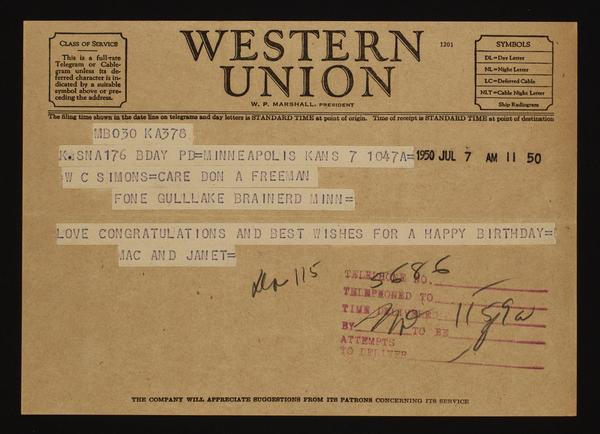 CLASS OF SERVICE
This is a full-rate
Telegram or Cable-
gram unless its de-
ferred character is in-
dicated by a suitable
symbol above or pre-
ceding the address.
WESTERN
UNION
W. P. MARSHALL, PRESIDENT
1201
SYMBOLS
DL=Day Letter
NL=Night Letter
LC=Deferred Cable
NLT=Cable Night Letter
Ship Radiogram
The filing time shown in the date line on telegrams and day letters is STANDARD TIME at point of origin. Time of receipt is STANDARD TIME at point of destination
MB030 KA378
K.SNA176 BDAY PD=MINNEAPOLIS KANS 7 1047A=
1950 JUL 7 AM 11 50
W C SIMONS=CARE DON A FREEMAN
FONE GULLLAKE BRAINERD MINN=
LOVE CONGRATULATIONS AND BEST WISHES FOR A HAPPY BIRTHDAY=
MAC AND JANET=
115
TELEPHONE NO. 5686
TELEPHONED TO
TIME DELIVERED 1159a
BY TO BE
ATTEMPTS
TO DELIVER
THE COMPANY WILL APPRECIATE SUGGESTIONS FROM ITS PATRONS CONCERNING ITS SERVICE